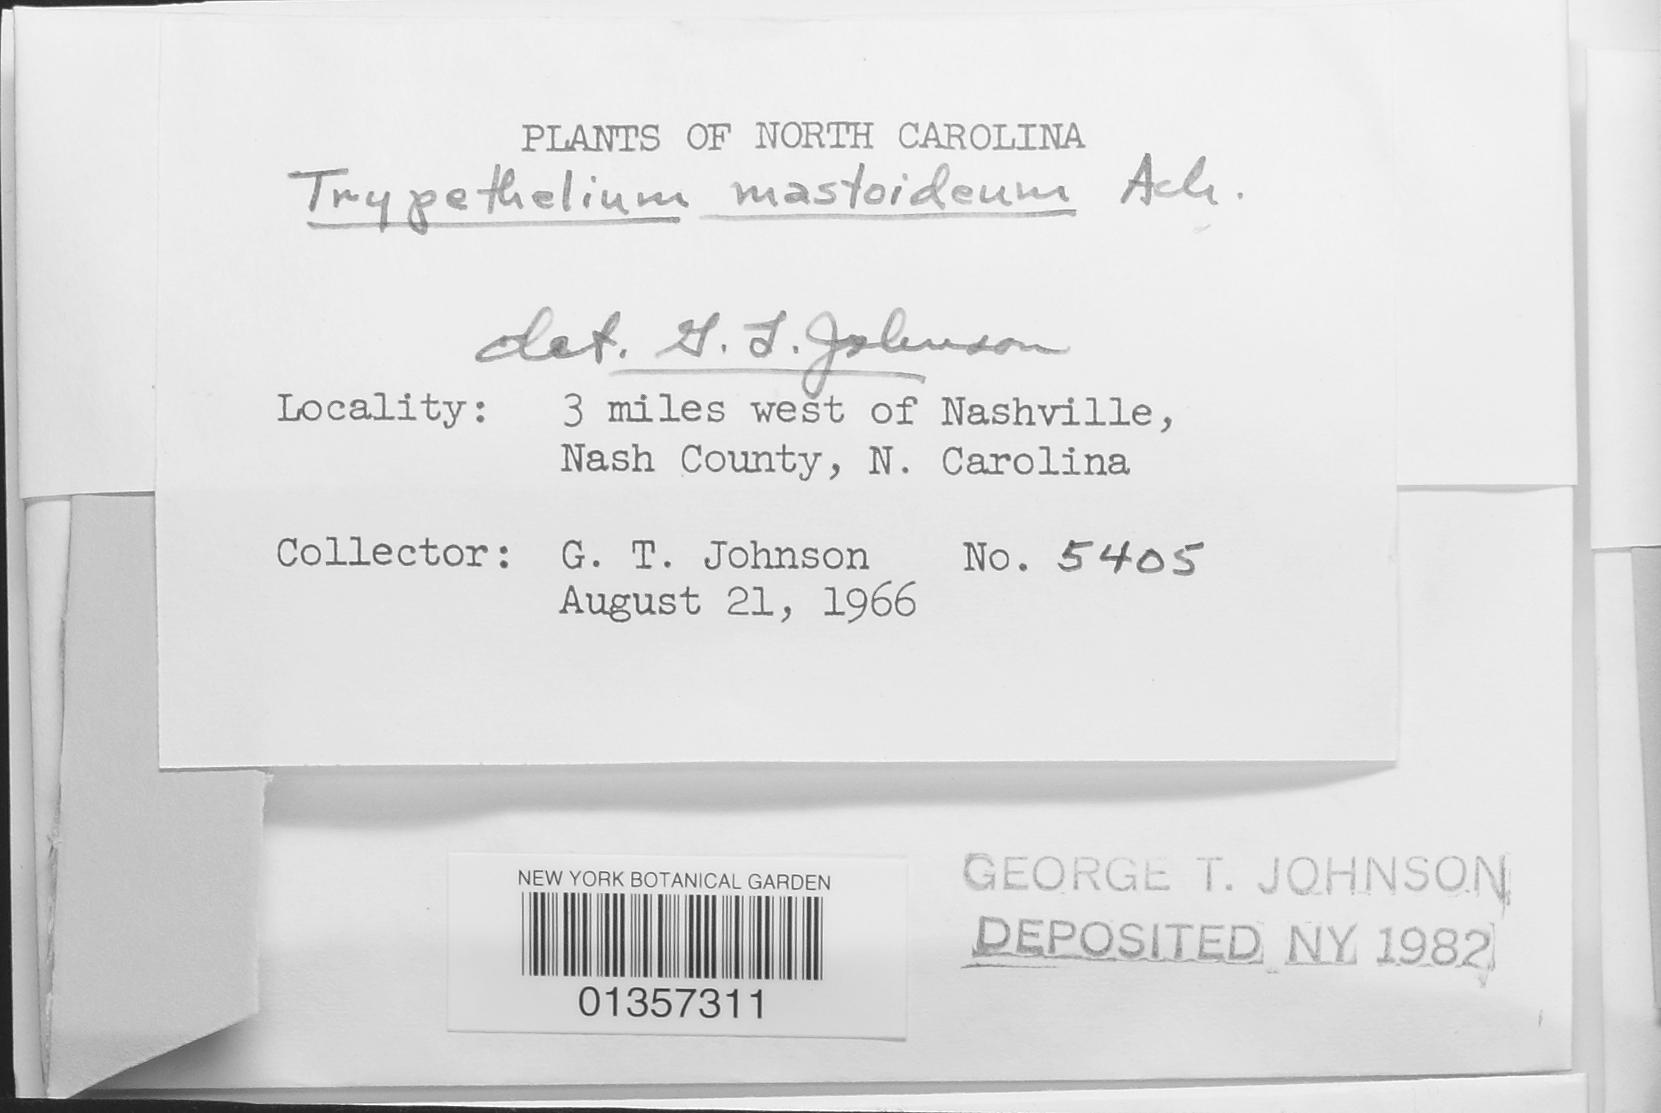 PLANTS OF NORTH CAROLINA
Trypethelium mastoideum Ach.
det. G. T. Johnson
Locality: 3 miles west of Nashville,
Nash County, N. Carolina
Collector: G. T. Johnson No. 5405
August 21, 1966
NEW YORK BOTANICAL GARDEN
01357311
GEORGE T. JOHNSON
DEPOSITED NY 1982